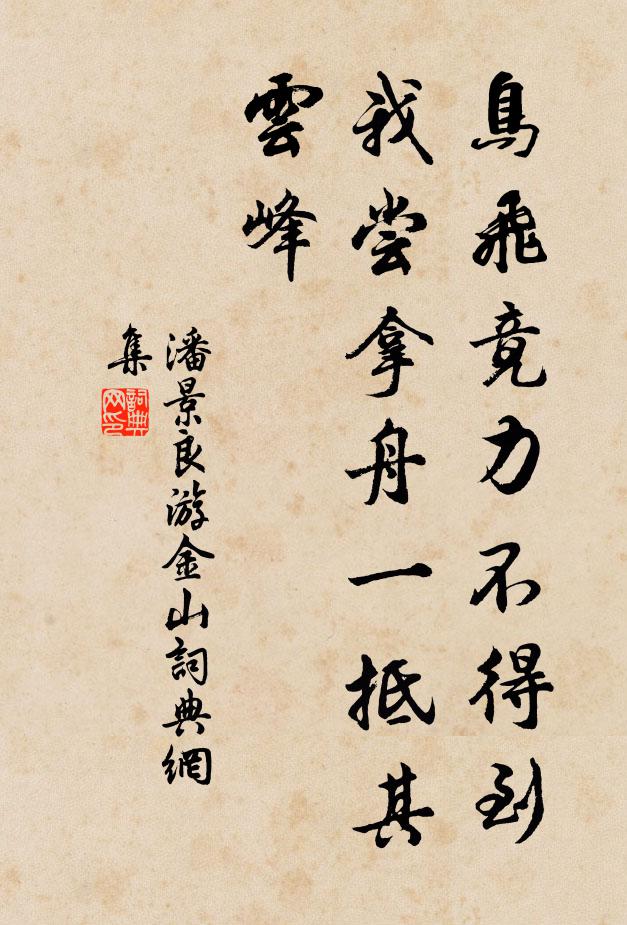 鳥飛竟力不得到
我尝拿舟一抵其
雲峰
潘景良游金山詞典網
集
詞典网印